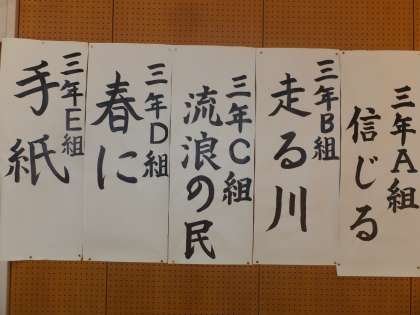 三年A組
信じる
三年B組
走る川
三年C組
流浪の民
三年D組
春に
三年E組
手紙